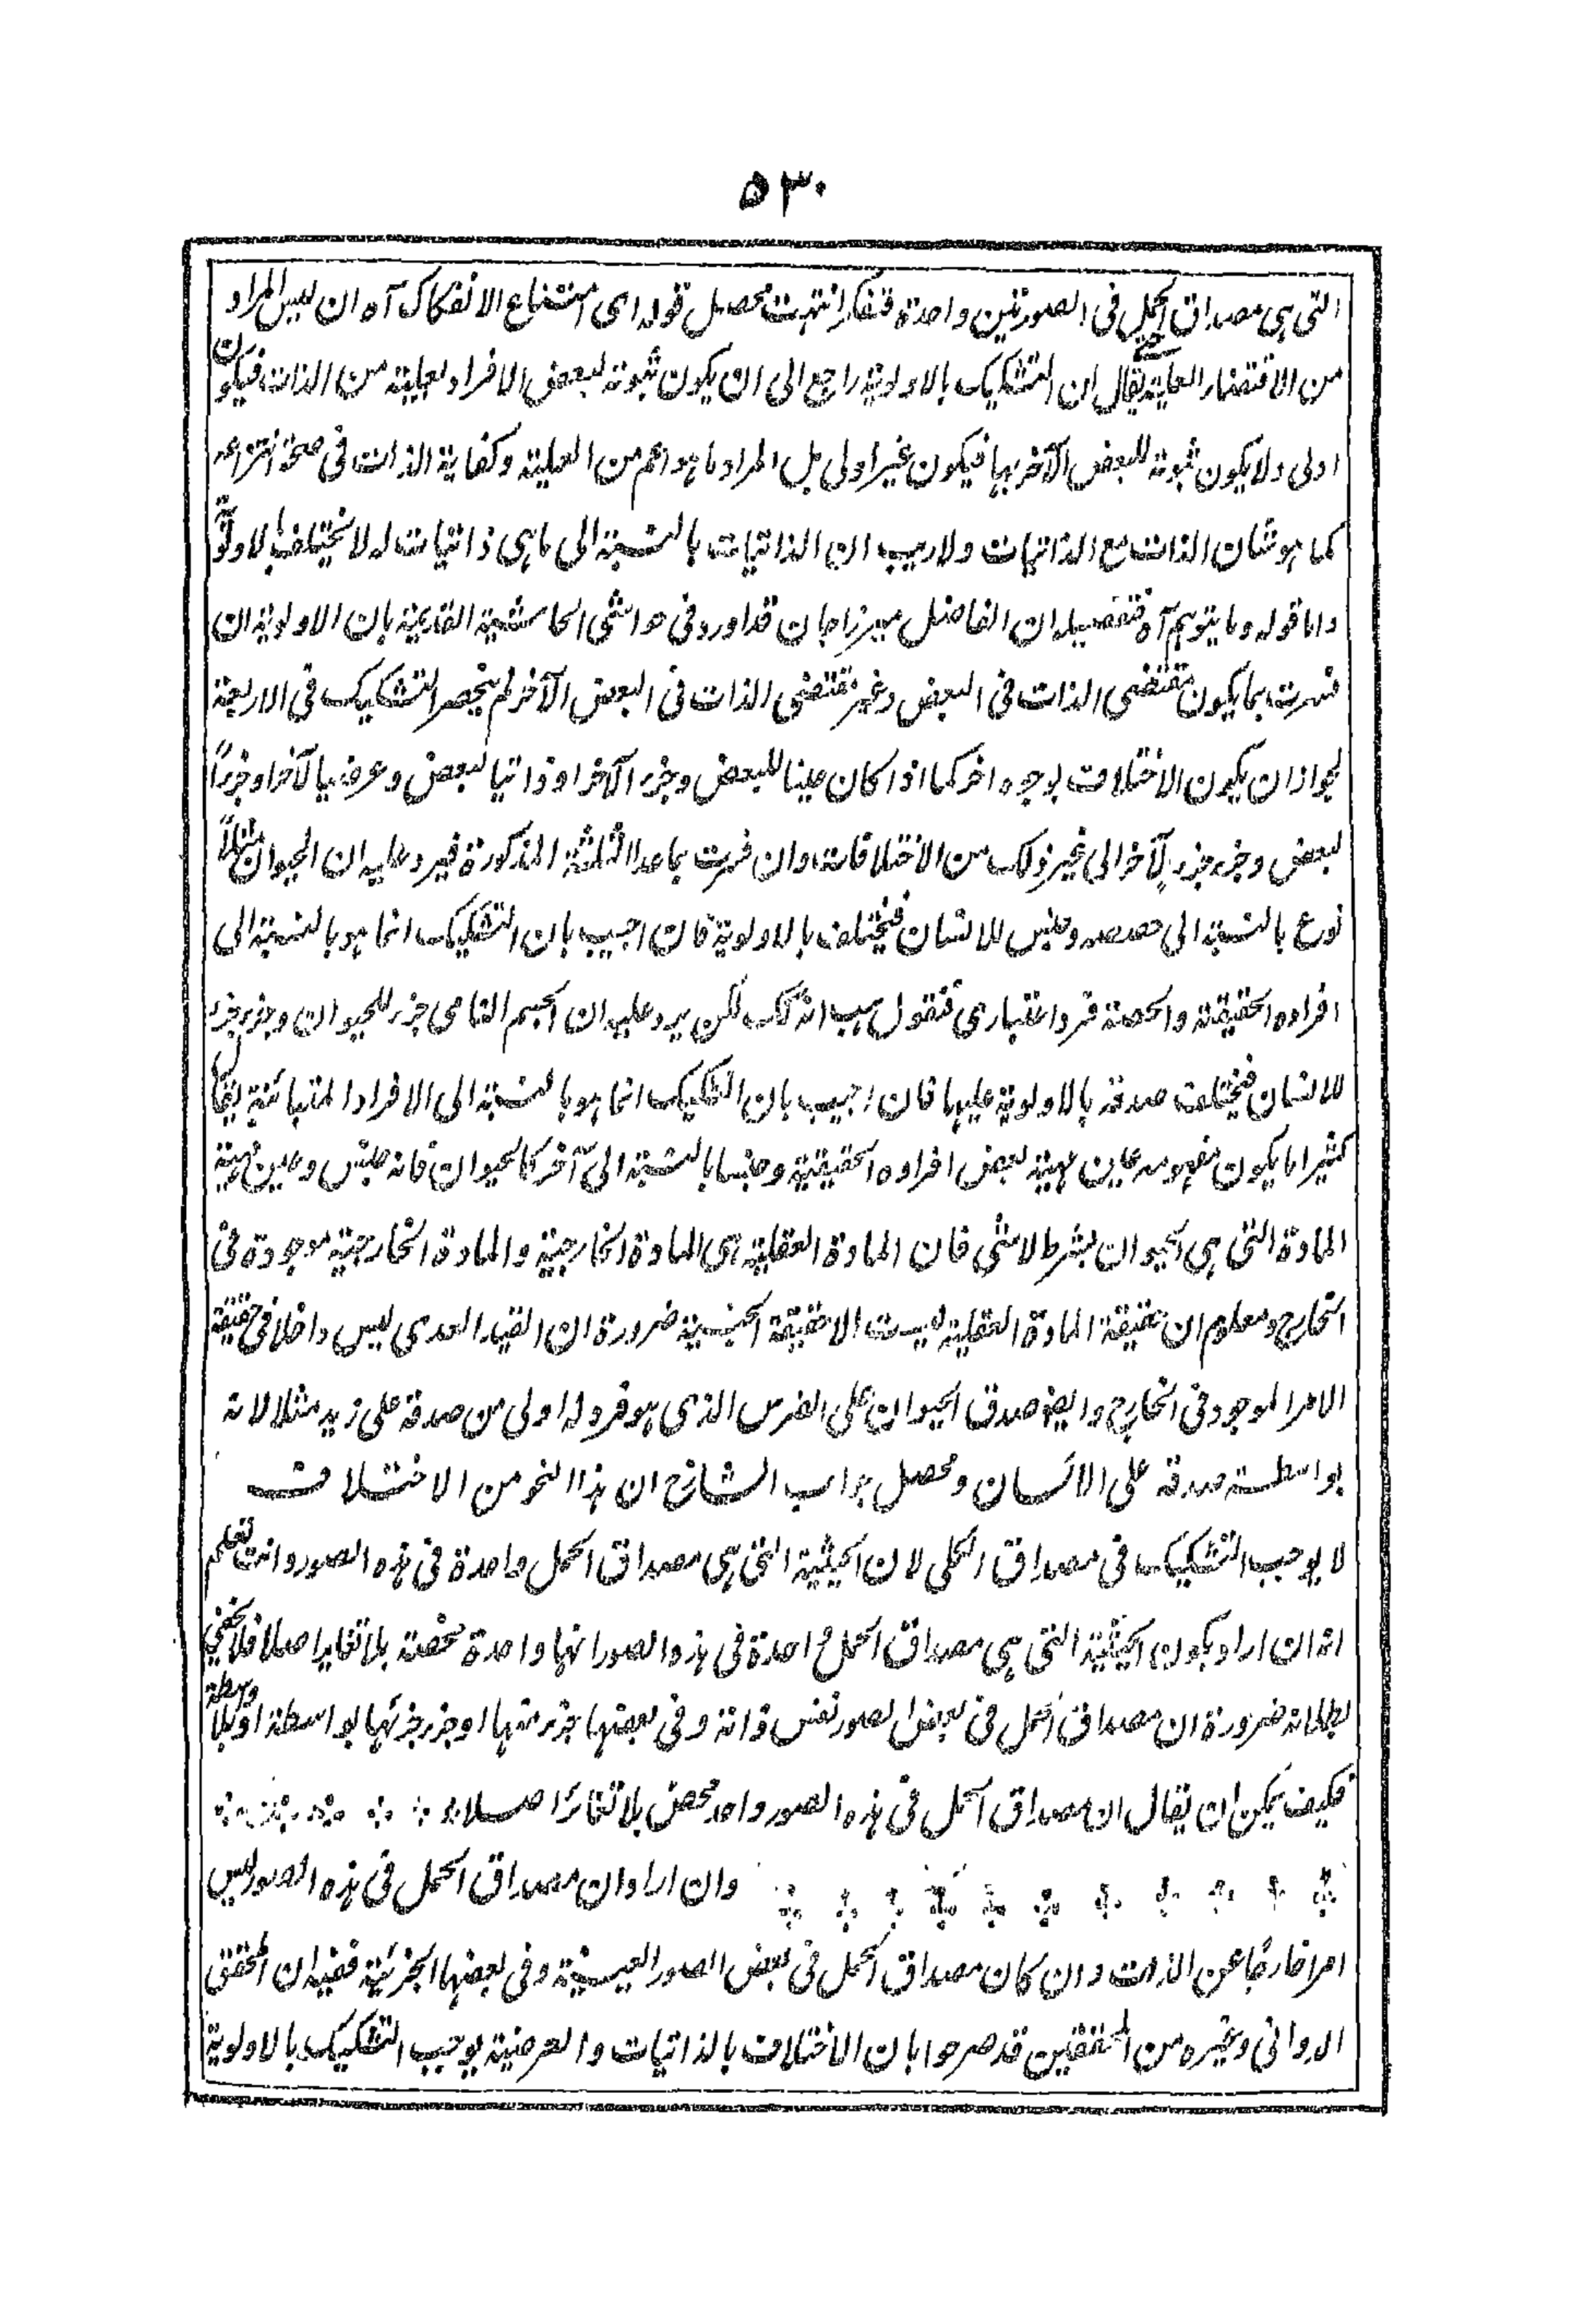 ۵۳۰
التی ہی مصداق الحمل فی الصورتین واحدة فتفکر انتہت محصیل قولہ ای امتناع الانفکاک آہ ان لیس المراد
من الاقتضاء العلیة یقال ان التشکیک بالاولویة راجع الی ان یکون ثبوتہ لبعض الافراد بعلیتہ من الذات فیکون
اولی ولا یکون ثبوتہ للبعض الآخر بہا فیکون غیر اولی بل المراد ما ہو اعم من العلیة وکفایة الذات فی صحة انتزاعہ
کما ہو شان الذات مع الذاتیات ولا ریب ان الذاتیات بالنسبة الی ما ہی ذاتیات لہ لا یختلف بالاولویة
واما قولہ وما یتوہم آہ فتفصیلہ ان الفاضل میرزا جان قد اورد فی حواشی الحاشیة القدیمة بان الاولویة ان
فسرت بما یکون مقتضی الذات فی البعض وغیر مقتضی الذات فی البعض الآخر لم ینحصر التشکیک فی الاربعة
لجواز ان یکون الاختلاف بوجوہ اخر کما اذا کان عینا للبعض وجزء الآخر او ذاتیا لبعض وعرضیا لآخر او جزءاً
لبعض وجزء جزء لآخر الی غیر ذلک من الاختلافات وان فسرت بما عدا الثلثة المذکورة فیرد علیہ ان الحیوان مثلاً
نوع بالنسبة الی حصصہ وجنس للانسان فیختلف بالاولویة فان اجیب بان التشکیک انما ہو بالنسبة الی
افرادہ الحقیقیة والحصة فرد اعتباری فنقول ہب انہ کک لکن یرد علیہ ان الجسم النامی جزء للحیوان وجزء جزء
للانسان فیختلف صدقہ بالاولویة علیہا فان اجیب بان التشکیک انما ہو بالنسبة الی الافراد المتباینة یقال
کثیرا ما یکون مفہومہ عین مہیة بعض افرادہ الحقیقیة وجنسا بالنسبة الی آخر کالحیوان فانہ جنس وعین مہیة
المادة التی ہی الحیوان بشرط لا شی فان المادة العقلیة ہی المادة الخارجیة والمادة الخارجیة موجودة فی
الخارج ومعلوم ان حقیقة المادة العقلیة لیست الا حقیقة الجنسیة ضرورة ان القید العدمی لیس داخلا فی حقیقة
الامر الموجود فی الخارج وایضا صدق الحیوان علی الفرس الذی ہو فرد لہ اولی من صدقہ علی زید مثلا لانہ
بواسطة صدقہ علی الانسان ومحصل جواب الشارح ان ہذا النحو من الاختلاف
لا یوجب التشکیک فی مصداق الکلی لان الحیثیة التی ہی مصداق الحمل واحدة فی ہذہ الصور وانت تعلم
انہ ان اراد بکون الحیثیة التی ہی مصداق الحمل واحدة فی ہذہ الصور انہا واحدة محضة بلا تغایر اصلا فلا یخفی
بطلانہ ضرورة ان مصداق الحمل فی بعض الصور نفس ذاتہ وفی بعضہا جزء منہا او جزء جزئہا بواسطة او بلا واسطة
فکیف یمکن ان یقال ان مصداق الحمل فی ہذہ الصور واحد محض بلا تغائر اصلا
وان اراد ان مصداق الحمل فی ہذہ الصور لیس
امرا خارجًا عن الذات وان کان مصداق الحمل فی بعض الصور العینیة وفی بعضہا الجزئیة ففیہ ان المحقق
الدوانی وغیرہ من المحققین قد صرحوا بان الاختلاف بالذاتیات والعرضیة یوجب التشکیک بالاولویة